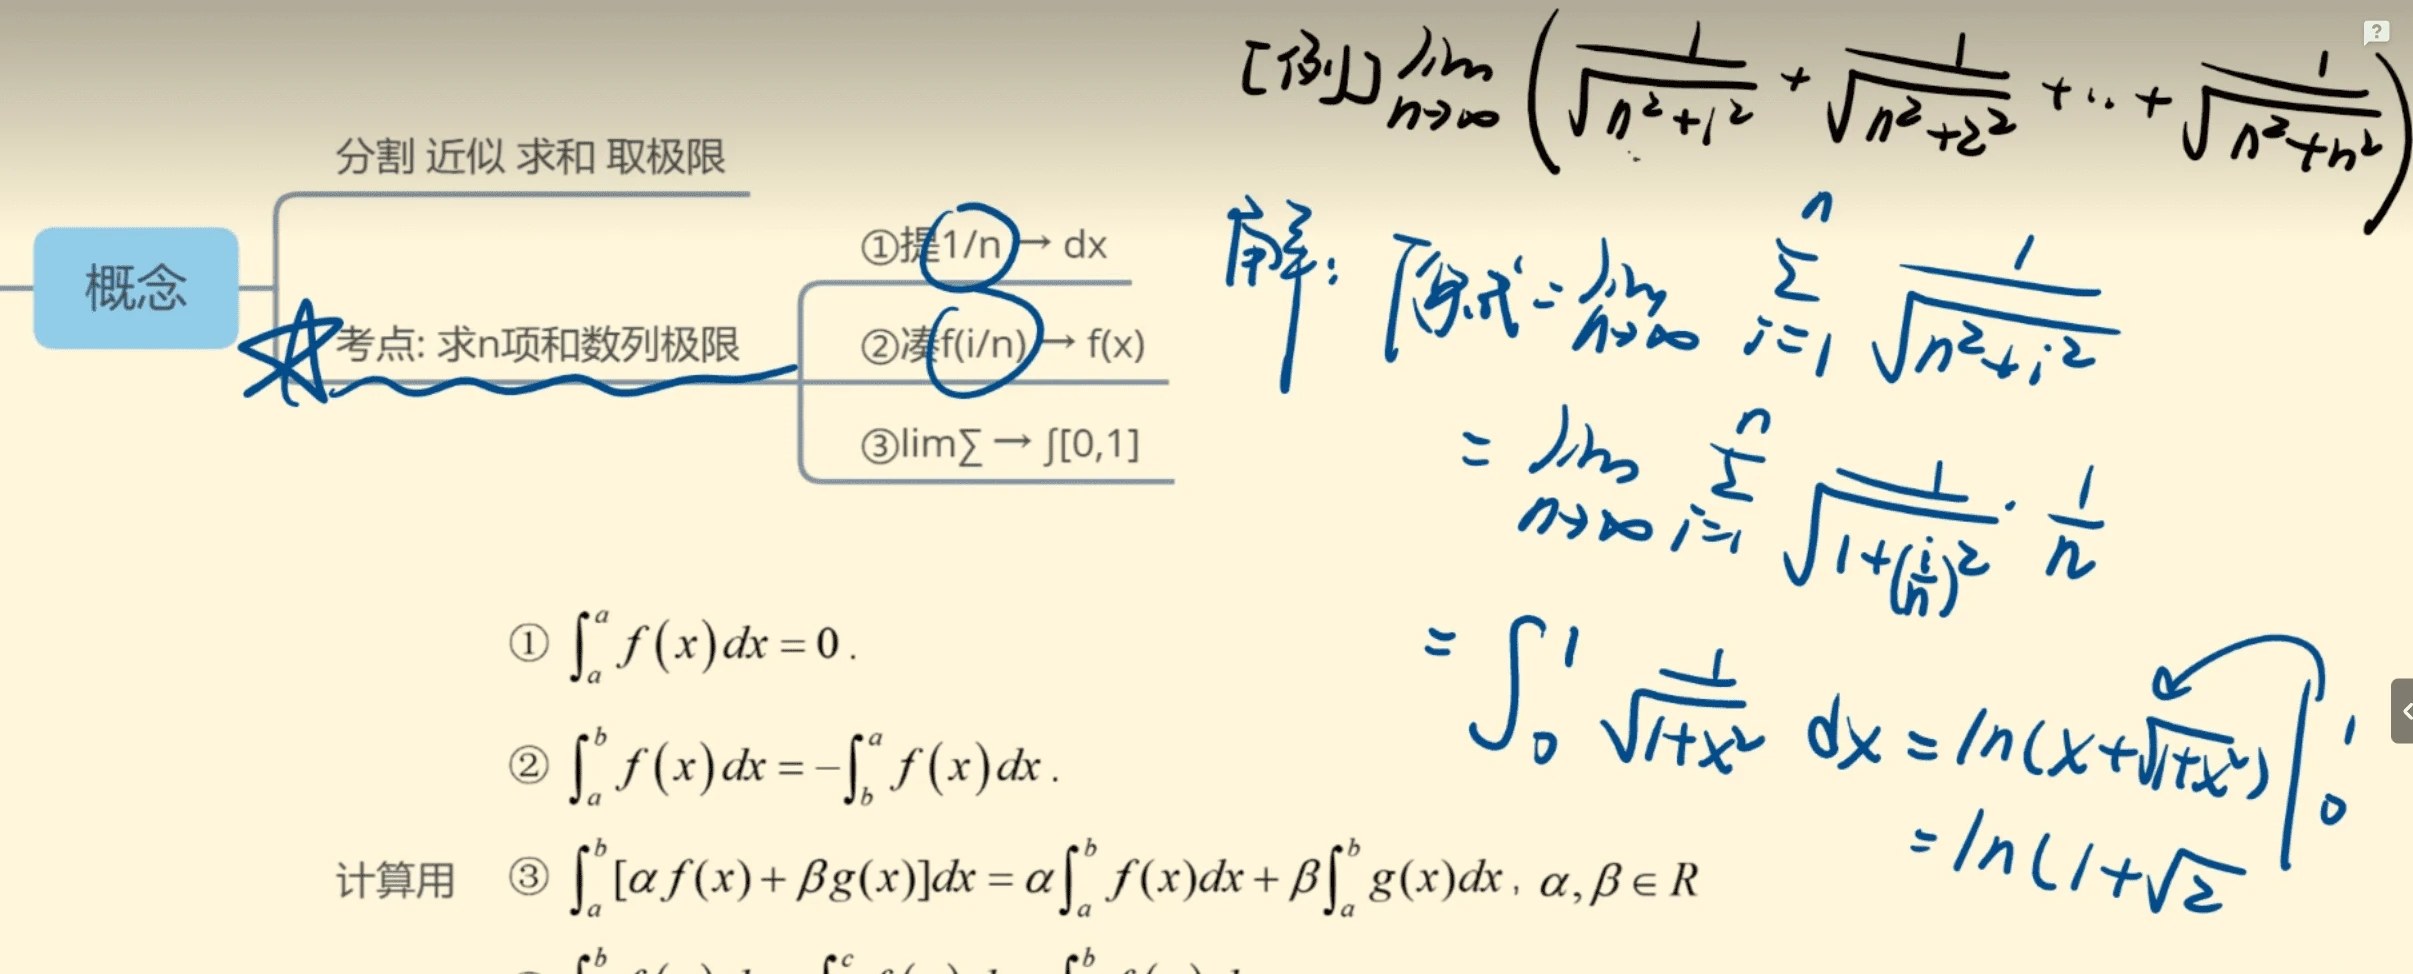 [例] lim n→∞ ( 1/√(n²+1²) + 1/√(n²+2²) + ... + 1/√(n²+n²) )
分割 近似 求和 取极限
概念
考点: 求n项和数列极限
①提1/n → dx
②凑f(i/n) → f(x)
③lim∑ → ∫[0,1]
解: 原式 = lim n→∞ Σ i=1 n 1/√(n²+i²)
= lim n→∞ Σ i=1 n 1/√(1+(i/n)²) · 1/n
= ∫₀¹ 1/√(1+x²) dx = ln(x+√(1+x²)) |₀¹
= ln(1+√2
① ∫ₐᵃ f(x)dx = 0 .
② ∫ₐᵇ f(x)dx = −∫_b^a f(x)dx .
计算用 ③ ∫ₐᵇ [αf(x)+βg(x)]dx = α∫ₐᵇ f(x)dx + β∫ₐᵇ g(x)dx , α,β∈R